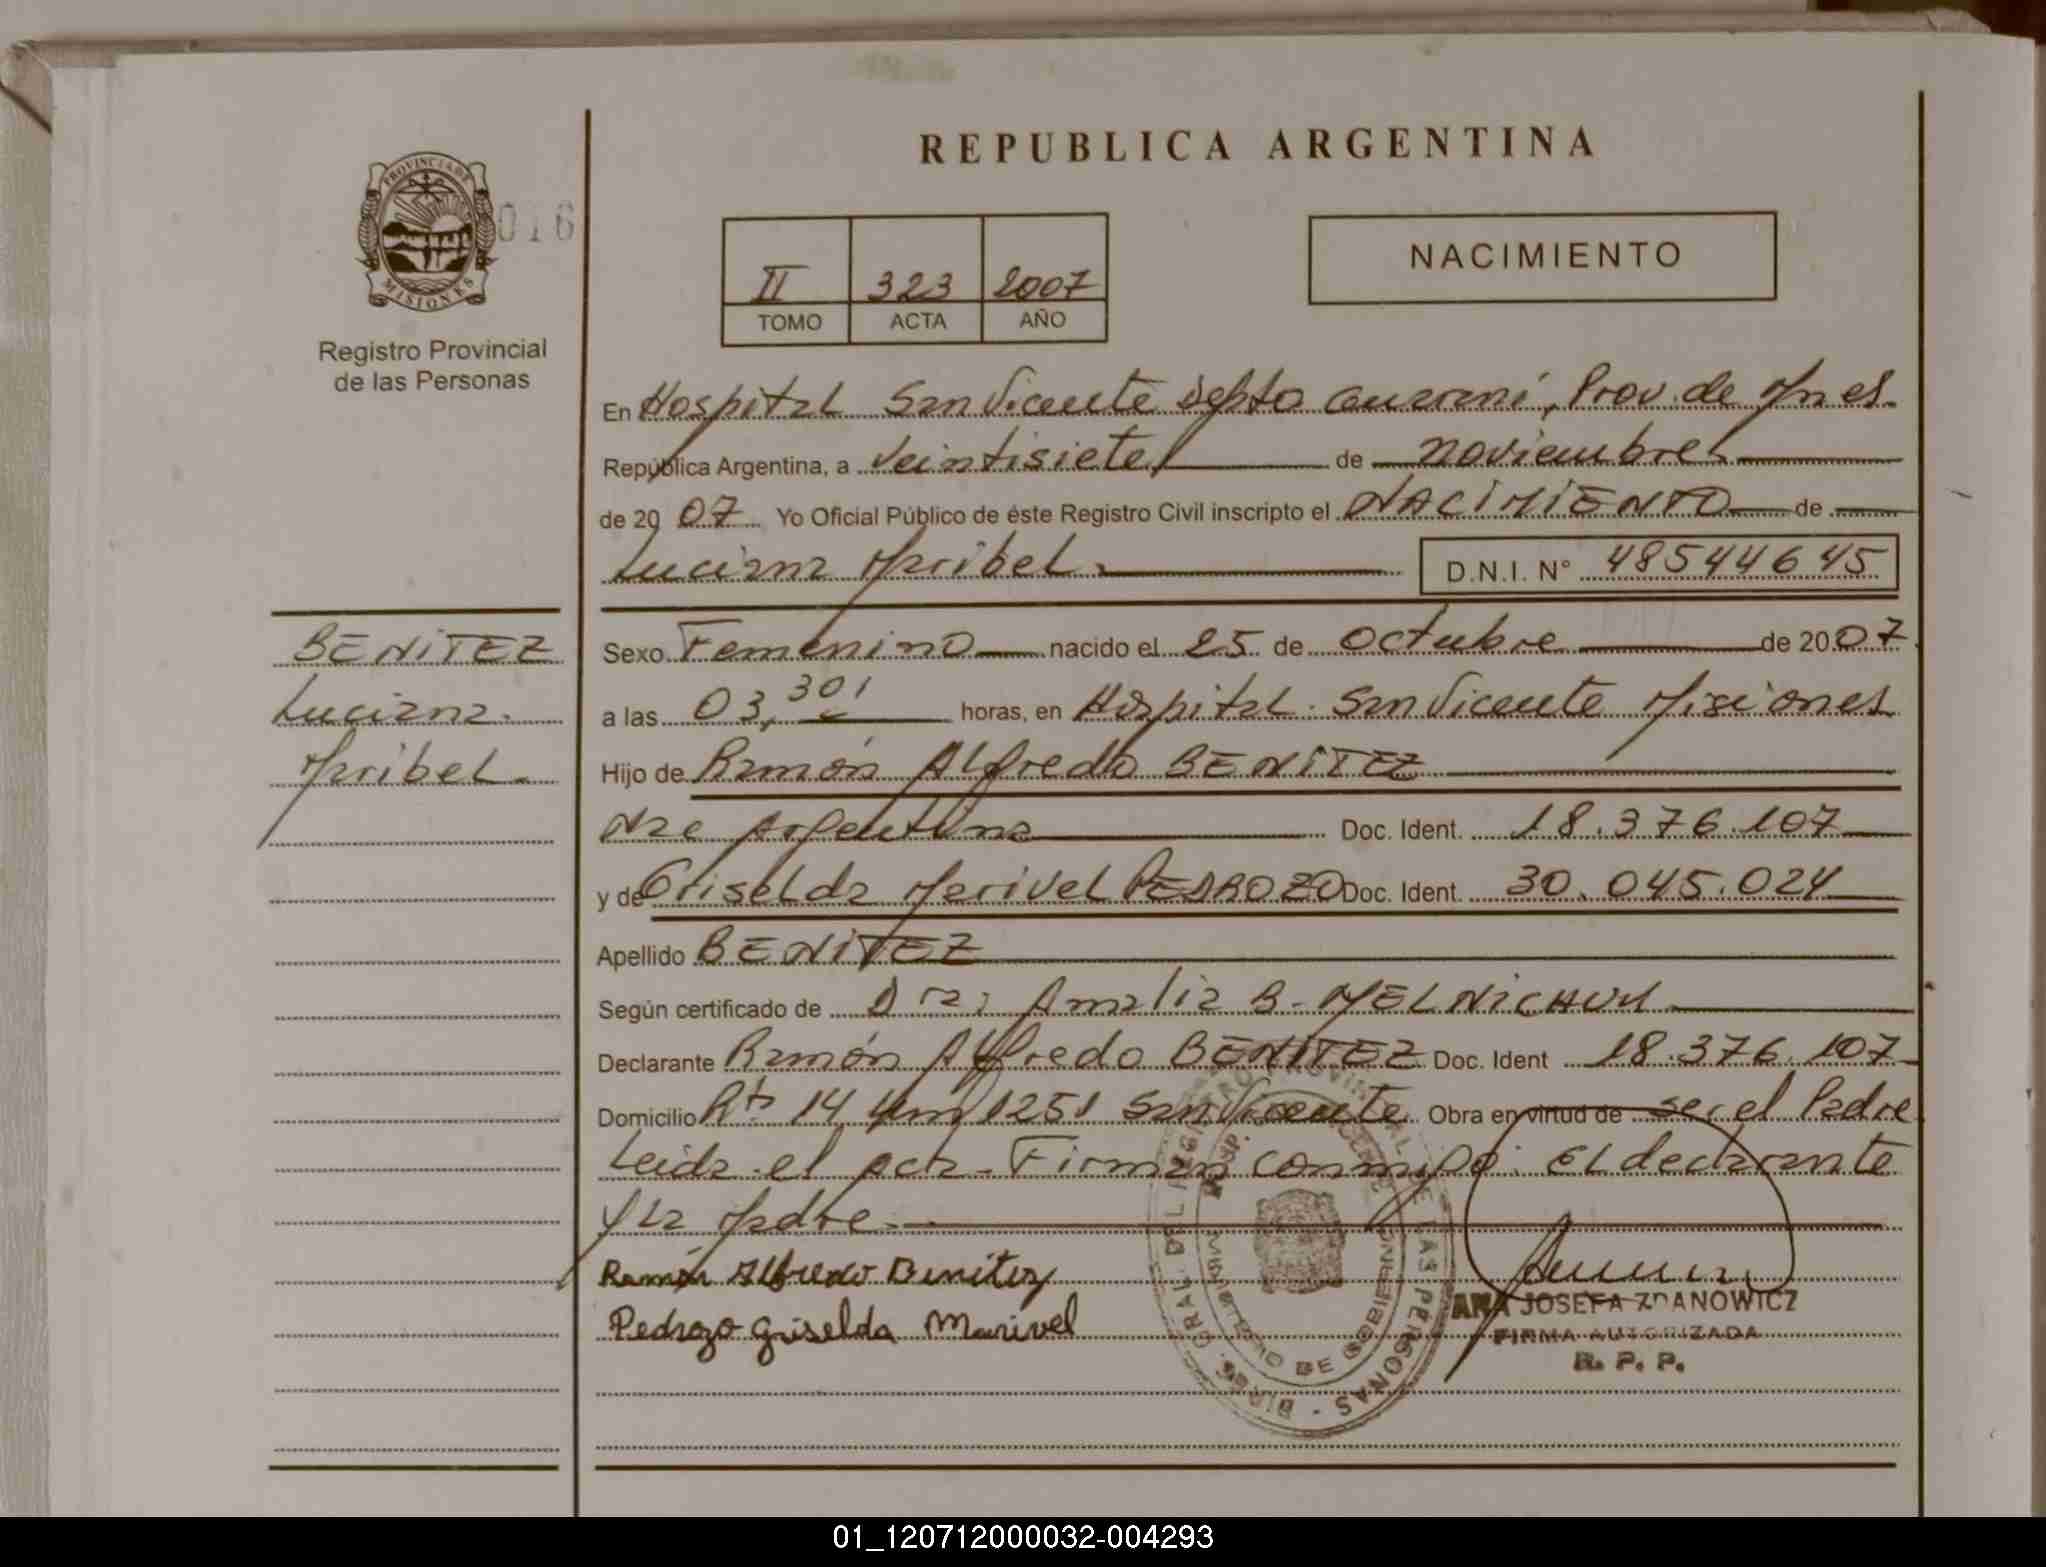 REPUBLICA ARGENTINA
PROVINCIA DE
MISIONES
016
Registro Provincial
de las Personas
II 323 2007
TOMO ACTA AÑO
NACIMIENTO
En Hospital San Vicente Depto Guarani, Prov. de Mnes.
República Argentina, a veintisiete de noviembre
de 2007 Yo Oficial Público de éste Registro Civil inscripto el NACIMIENTO de
Luciana Maribel. D.N.I. N° 48544645
BENITEZ
Luciana.
Maribel.
Sexo Femenino nacido el 25 de Octubre de 2007
a las 03,30' horas, en Hospital San Vicente Misiones
Hijo de Ramón Alfredo BENITEZ
Nac Argentina Doc. Ident. 18.376.107
y de Griselda Marivel PEDROZO Doc. Ident. 30.045.024
Apellido BENITEZ
Según certificado de Dra: Amalia B. MELNICHUK
Declarante Ramón Alfredo BENITEZ Doc. Ident 18.376.107
Domicilio Rta 14 Km 1251 San Vicente Obra en virtud de ser el Padre
Leida el acta - Firman conmigo: El declarante
y la Madre.
Ramón Alfredo Benitez
Pedrozo Griselda Marivel
ANA JOSEFA ZDANOWICZ
FIRMA AUTORIZADA
R. P. P.
DIREC. GRAL. DEL REGISTRO PROVINCIAL DE LAS PERSONAS
MINISTERIO DE GOBIERNO
01_120712000032-004293